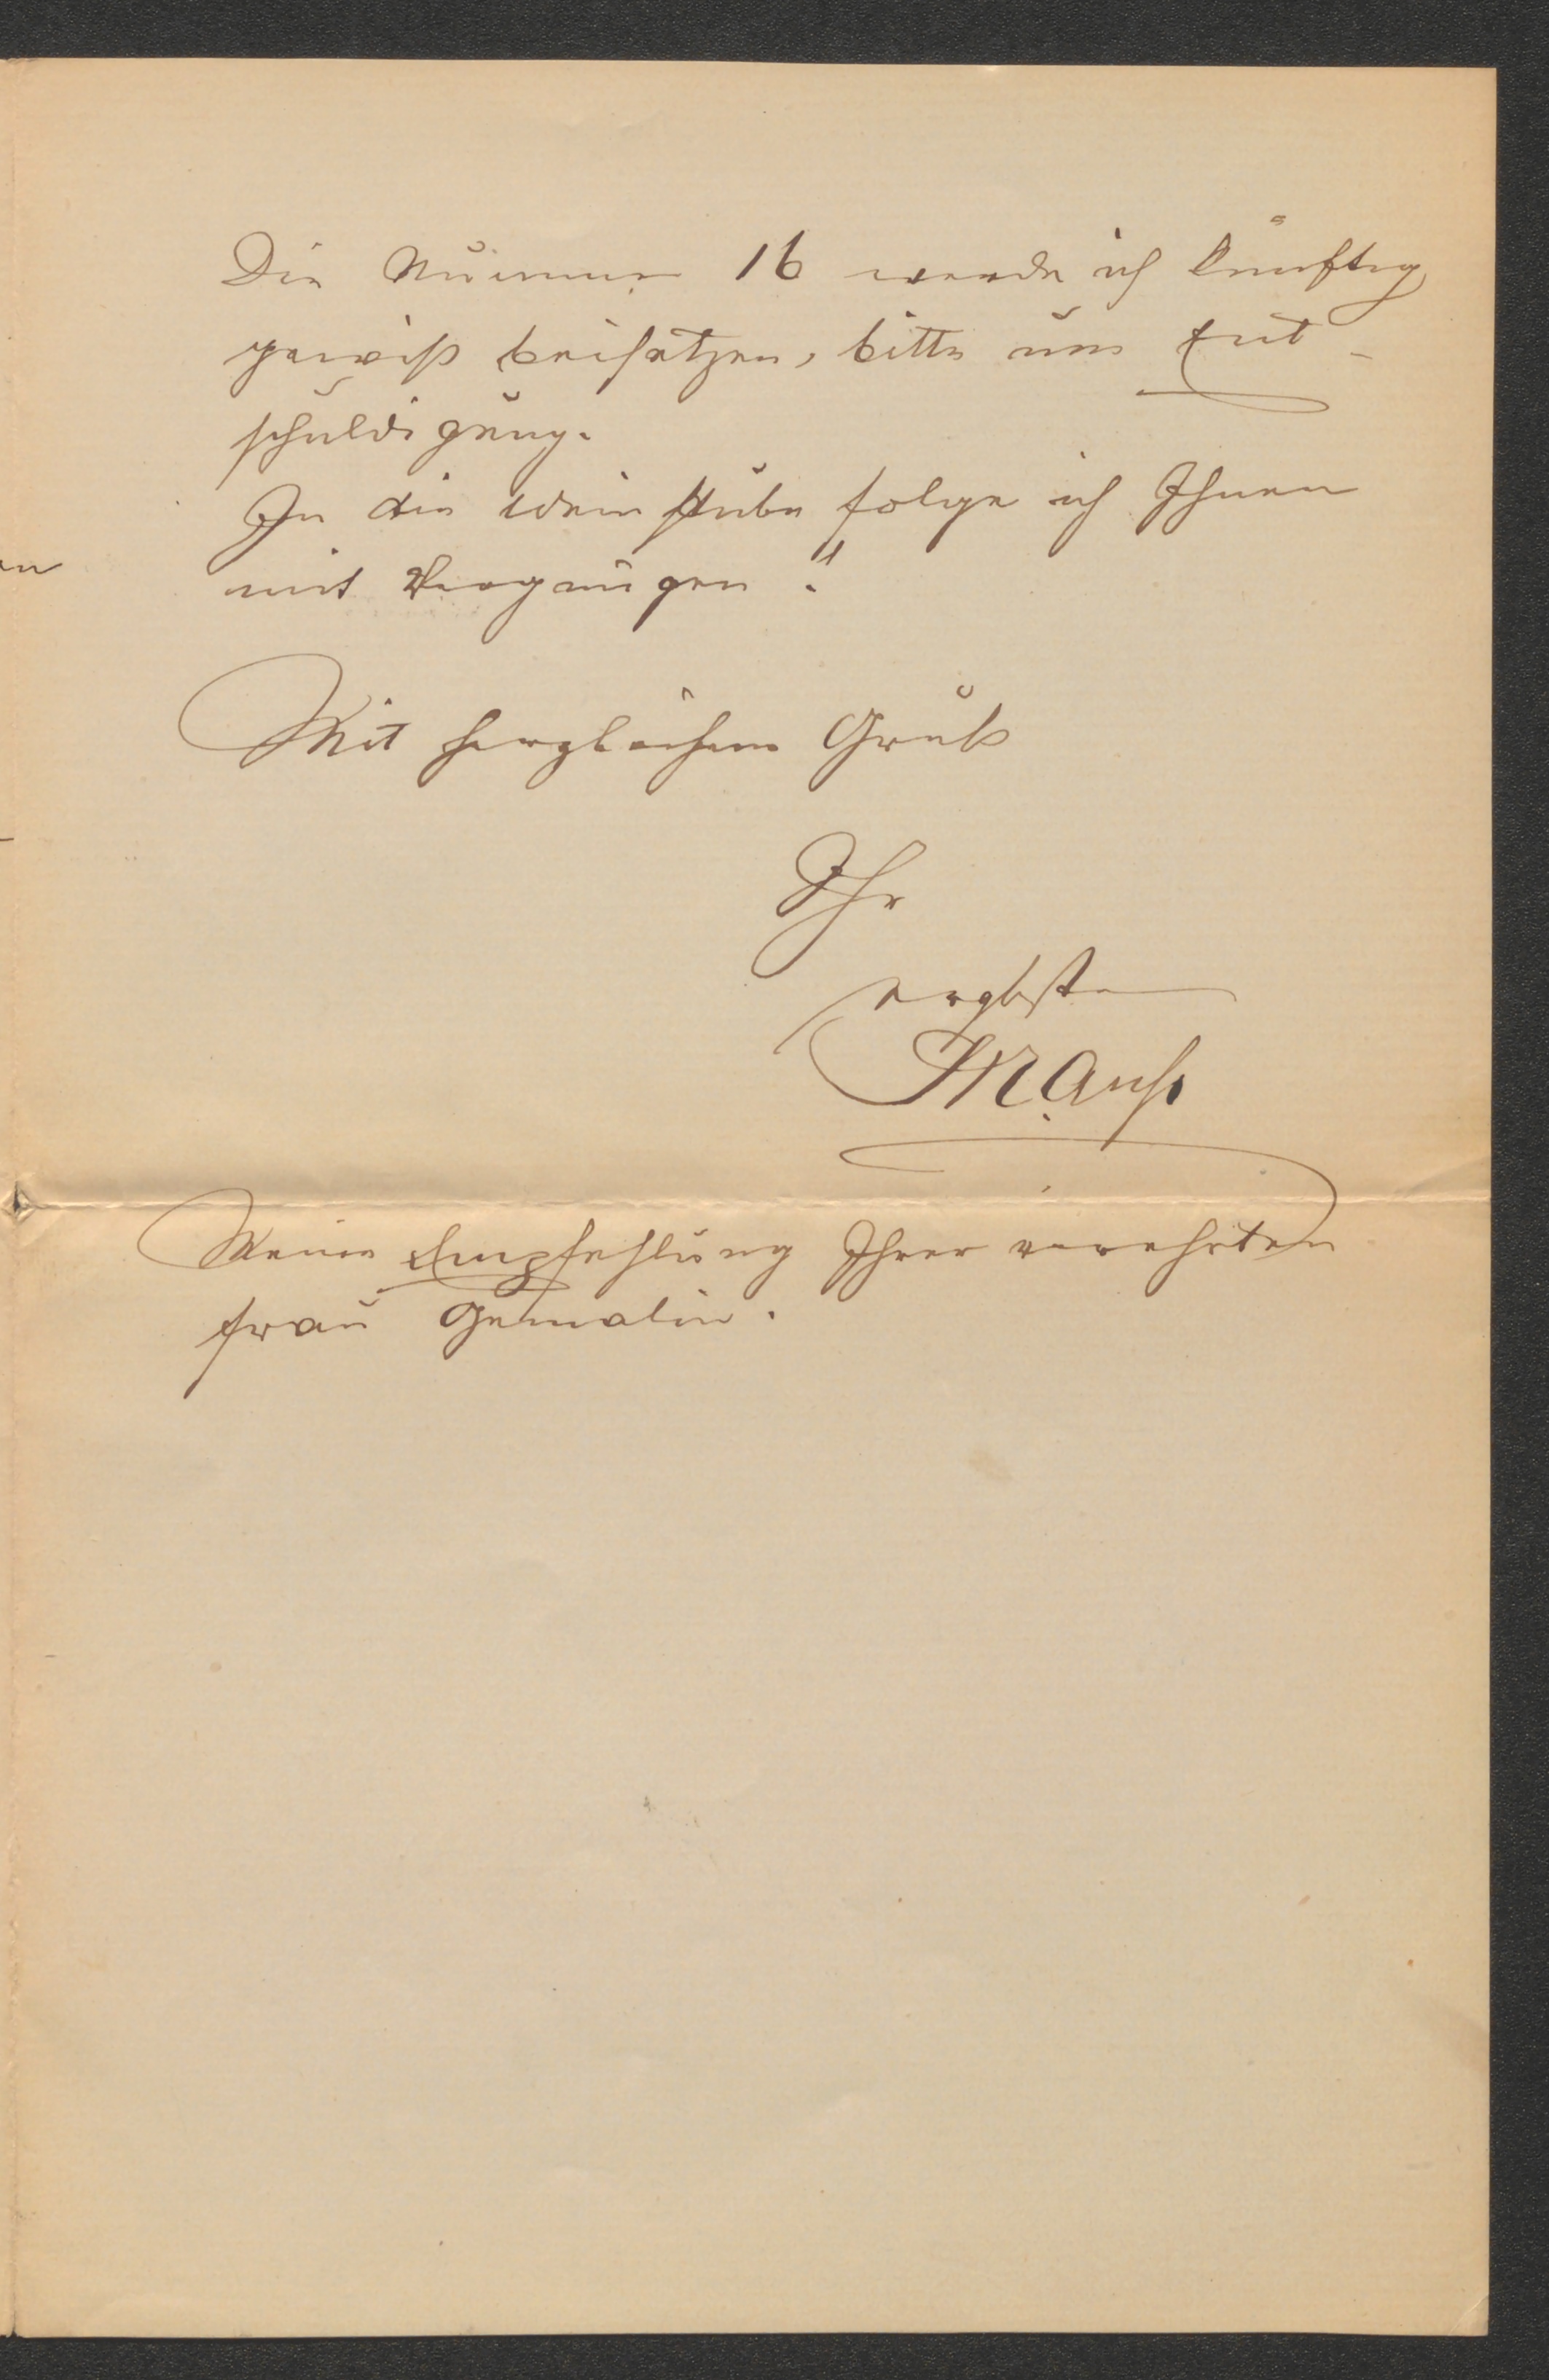 Die Nummer 16 werde ich künftig
gewiß beisetzen, bitte um Ent-
schuldigung.
In die Weinstube folge ich Ihnen
mit Vergnügen!
Mit herzlichem Gruß
Ihr
ergbst
Meine Empfehlung Ihrer verehrten
Frau Gemalin.